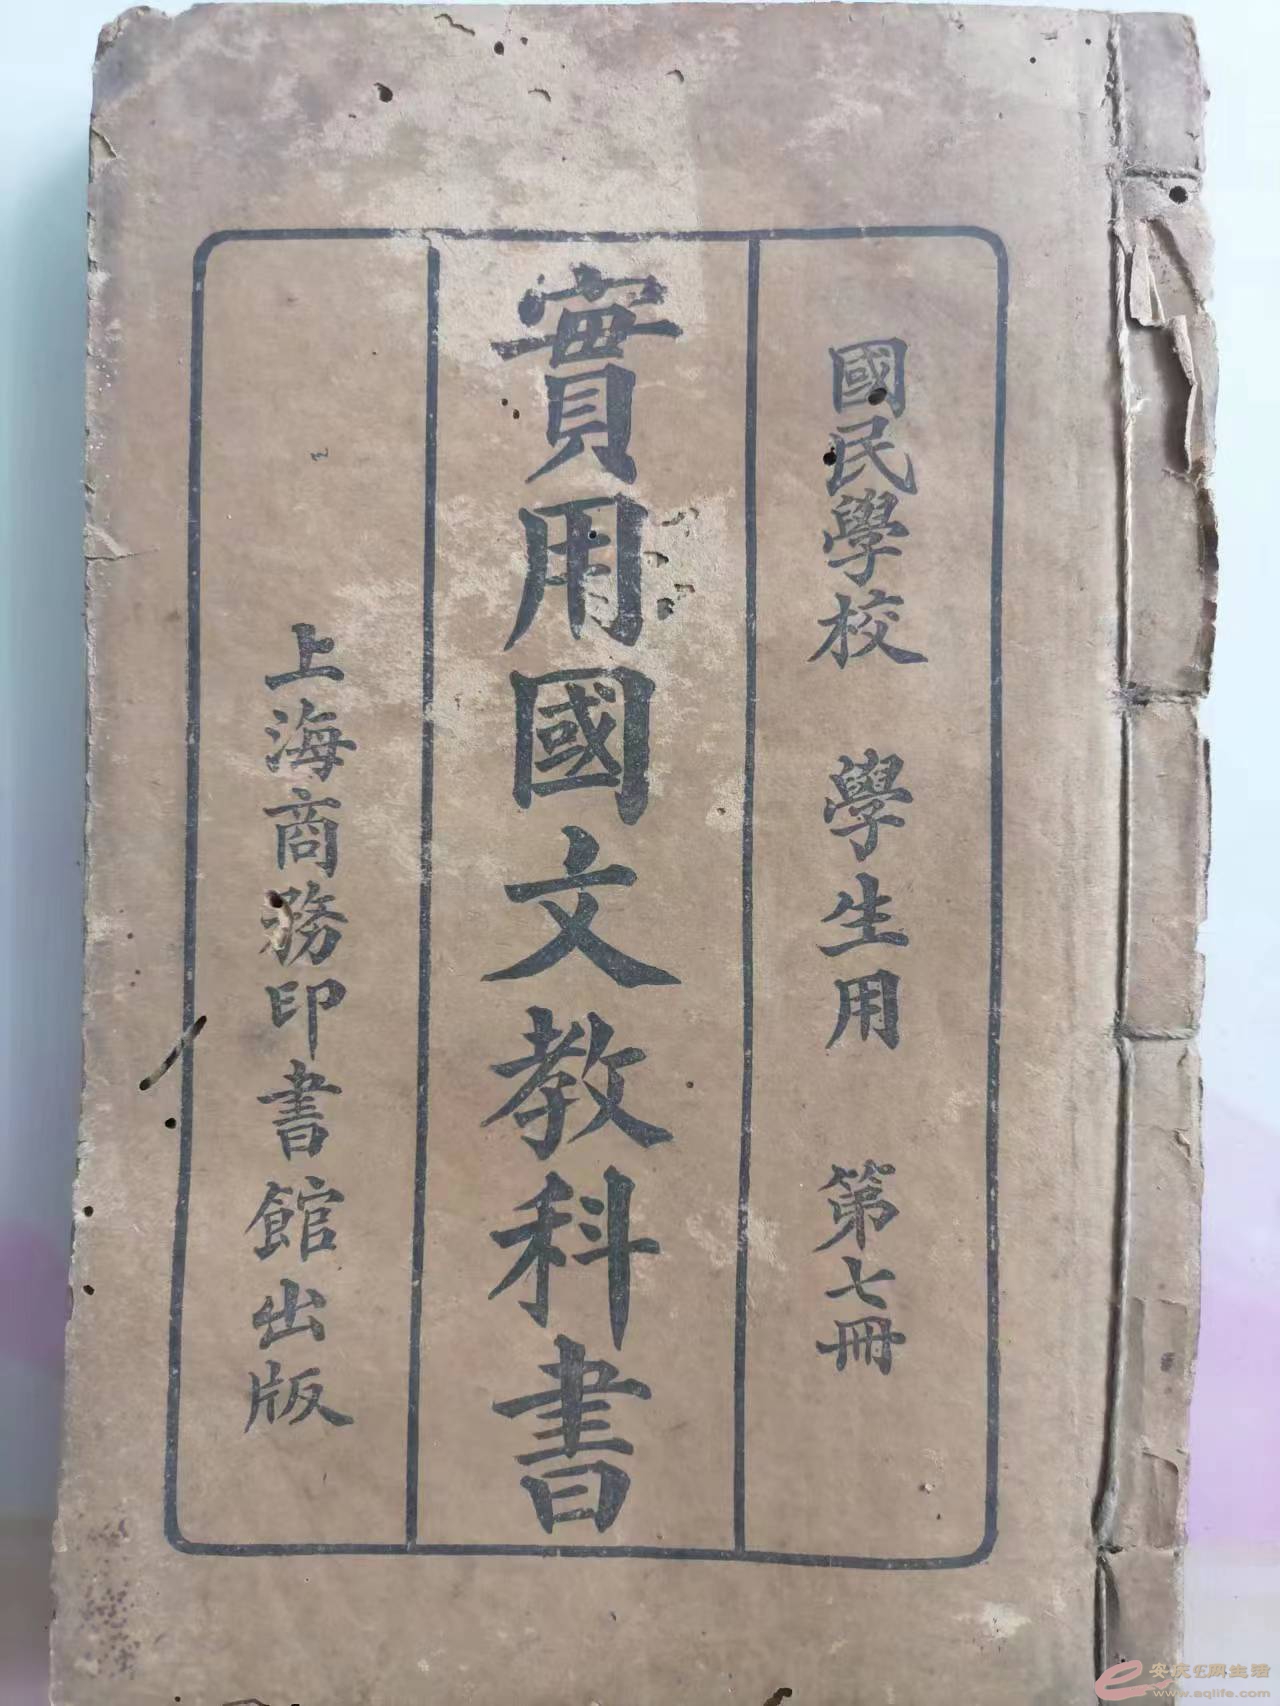 國民學校 學生用 第七冊
實用國文教科書
上海商務印書館出版
安庆E网生活
www.aqlife.com